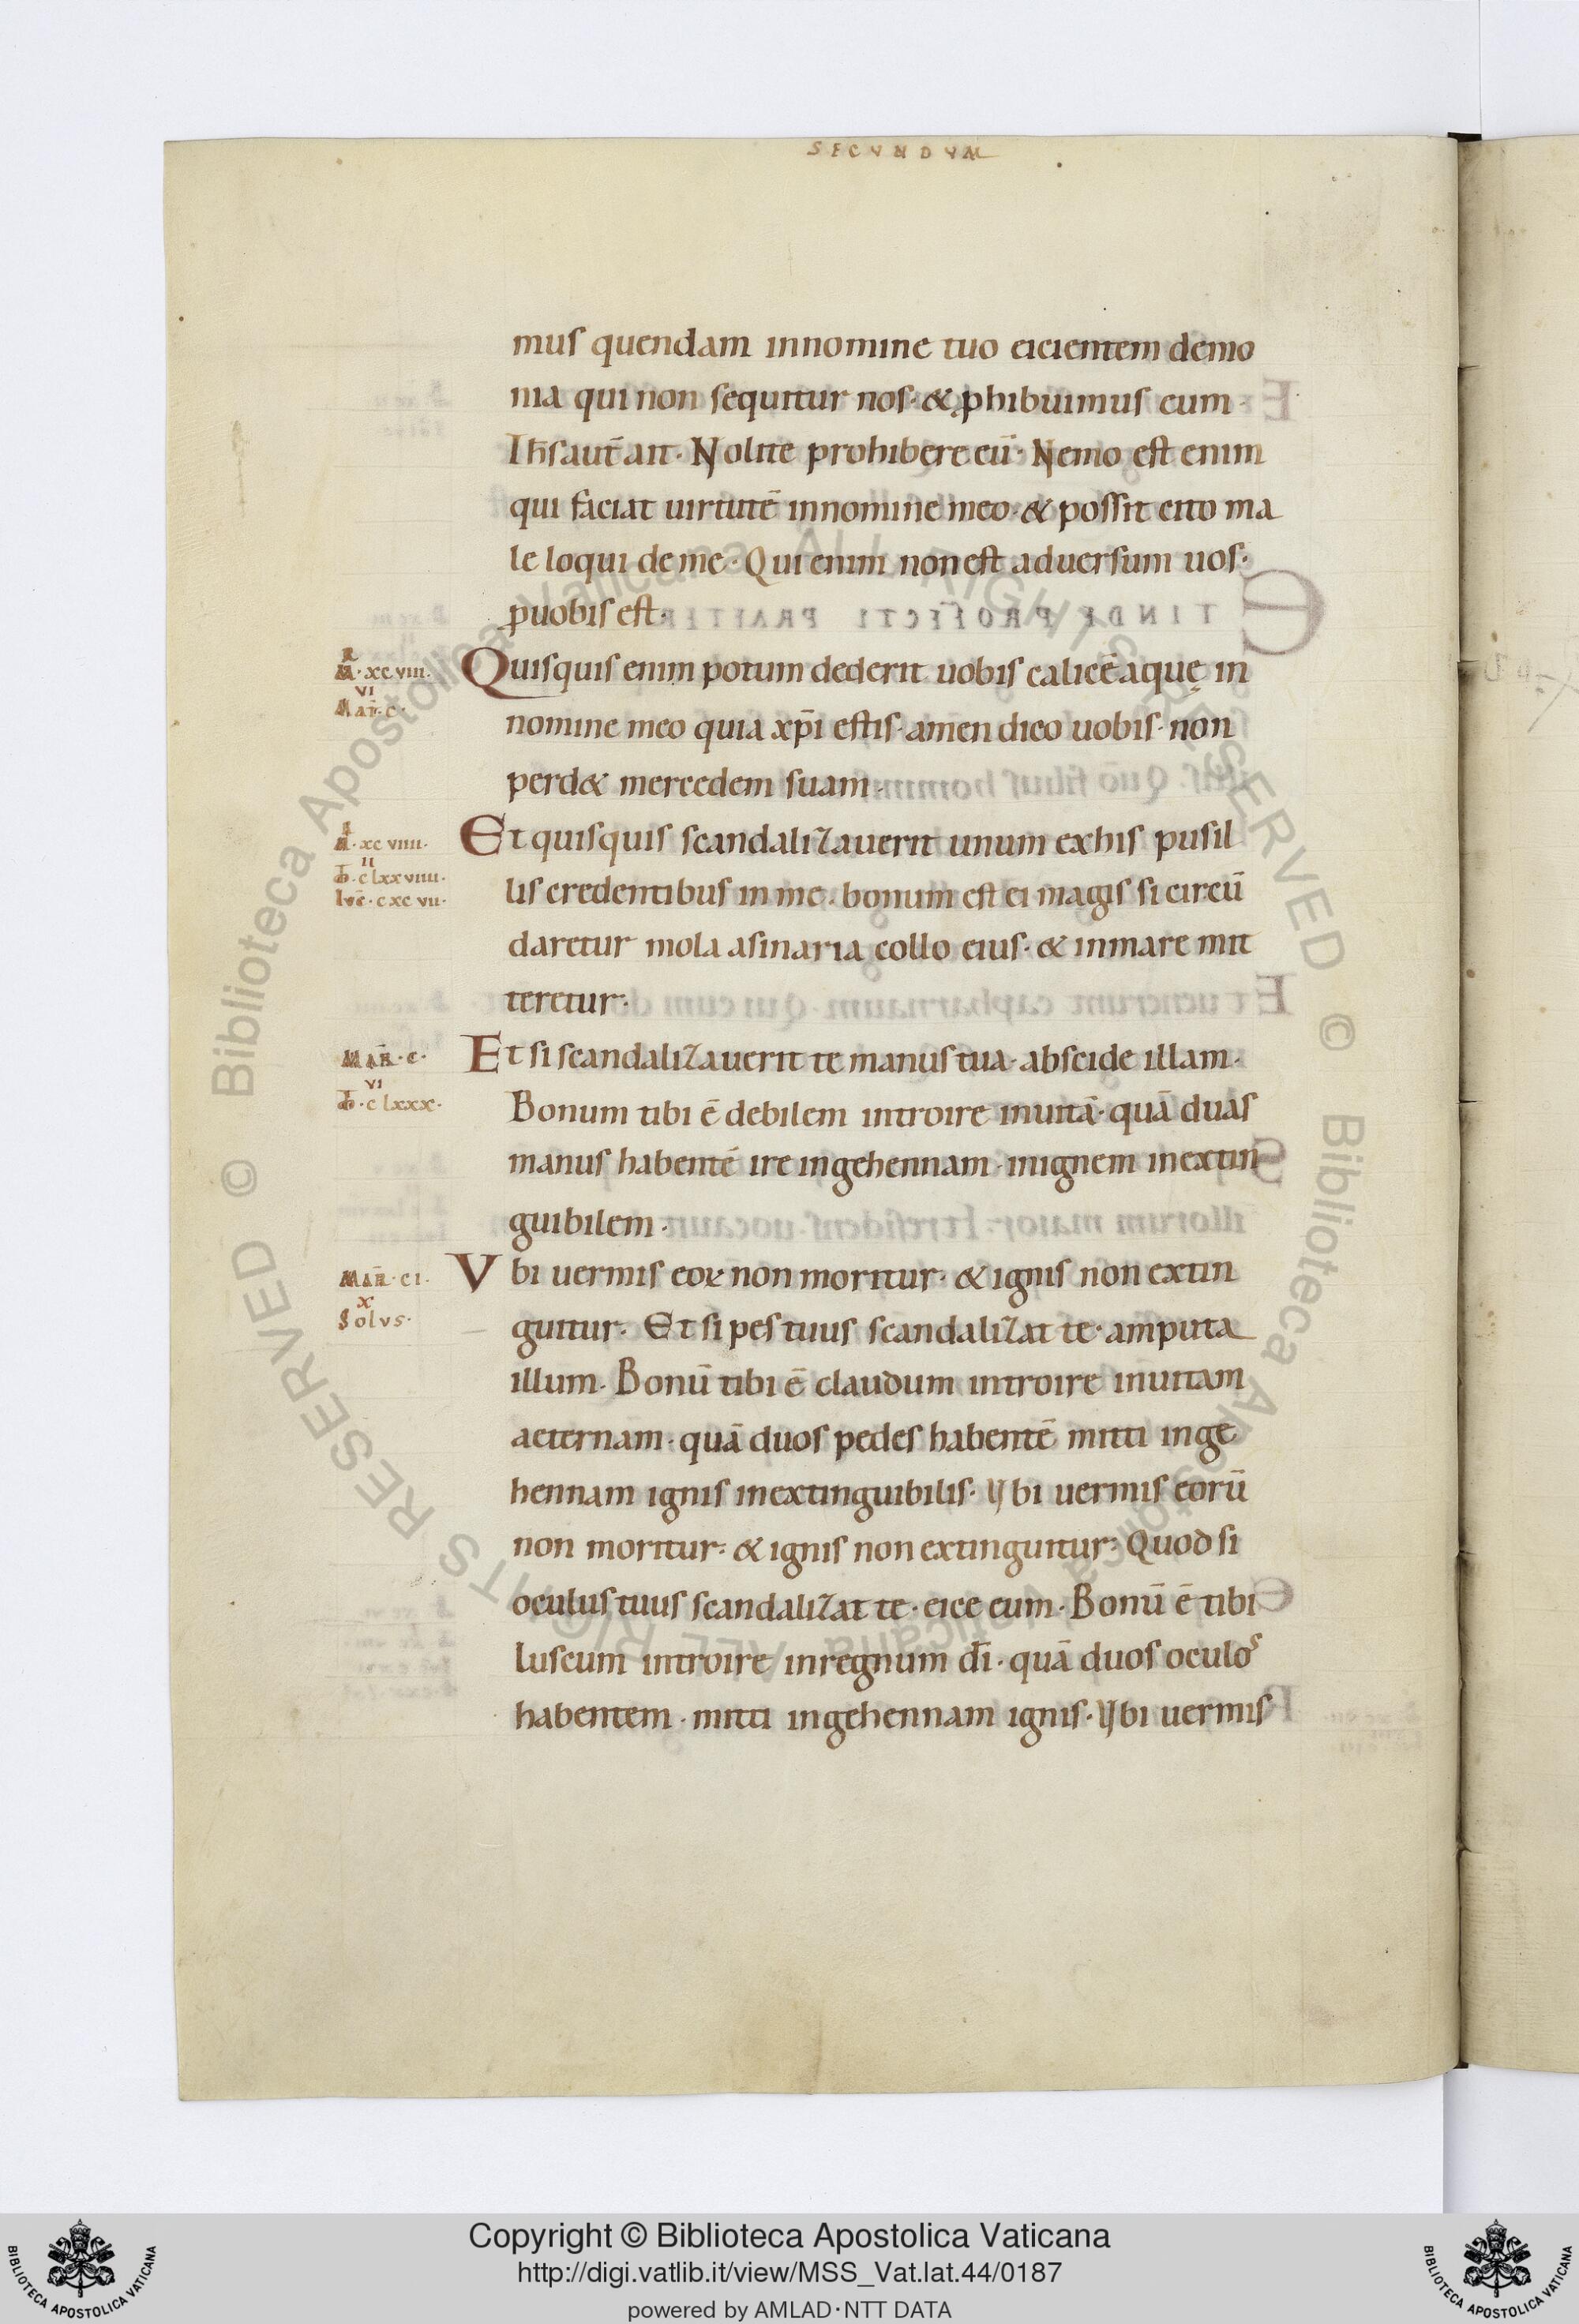 SECUNDUM
mus quendam innomine tuo eicientem demo
nia qui non sequitur nos· & ꝓhibuimus eum·
Ih̅s aut̅ ait· Nolite prohibere eu̅· Nemo est enim
qui faciat uirtute̅ innomine meo· & possit cito ma
le loqui de me· Qui enim non est aduersum uos·
ꝓuobis est·
R̅·xcviii· Quisquis enim potum dederit uobis calice̅ aquę in
VI
Mat̅·c· nomine meo quia xp̅i estis· am̅en dico uobis· non
perd& mercedem suam·
xcviiii· Et quisquis scandalizauerit unum exhis pusil
II
clxxviiii·
luc̅·cxcvii· lis credentibus in me· bonum est ei magis si circu̅
daretur mola asinaria collo eius· & inmare mit
teretur·
Mar̅·c· Et si scandalizauerit te manus tua· abscide illam·
VI
clxxx· Bonum tibi e̅ debilem introire inuita̅· qua̅ duas
manus habente̅ ire ingehennam· inignem inextin
guibilem·
Mar̅·ci· Vbi uermis eoꝝ non moritur· & ignis non extin
x
Solus· guitur· Et si pes tuus scandalizat te· amputa
illum· Bonu̅ tibi e̅ claudum introire inuitam
aeternam· qua̅ duos pedes habente̅ mitti inge
hennam ignis inextinguibilis· Vbi uermis eoru̅
non moritur· & ignis non extinguitur· Quod si
oculus tuus scandalizat te· eice eum· Bonu̅ e̅ tibi
luscum introire inregnum di̅· qua̅ duos oculos
habentem· mitti ingehennam ignis· Vbi uermis
© Biblioteca Apostolica Vaticana ALL RIGHTS RESERVED © Biblioteca Apostolica Vaticana ALL RIGHTS RESERVED
Copyright © Biblioteca Apostolica Vaticana
http://digi.vatlib.it/view/MSS_Vat.lat.44/0187
powered by AMLAD·NTT DATA
BIBLIOTECA APOSTOLICA VATICANA
BIBLIOTECA APOSTOLICA VATICANA